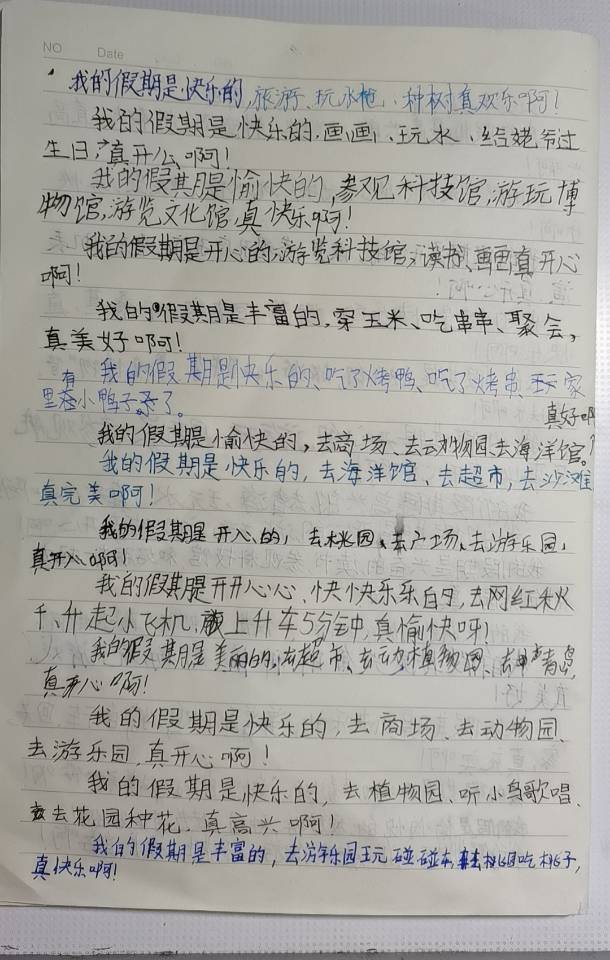 NO Date
我的假期是快乐的,旅游、玩水枪、种树真欢乐啊!
我的假期是快乐的,画画、玩水、给姥爷过
生日,真开心啊!
我的假期是愉快的,参观科技馆,游玩博
物馆,游览文化馆真快乐啊!
我的假期是开心的,游览科技馆,读书、画画真开心
啊!
我的假期是丰富的,穿玉米、吃串串、聚会,
真美好啊!
我的假期是快乐的、吃了烤鸭、吃了烤串、玩家
里有小鸭子了。
真好啊
我的假期是愉快的,去商场、去动物园、去海洋馆。
我的假期是快乐的,去海洋馆、去超市,去沙滩
真完美啊!
我的假期是开心的,去桃园、去广场、去游乐园,
真开心啊!
我的假期是开开心心、快快乐乐的,去网红秋
千、升起小飞机、上升车5分钟,真愉快呀!
我的假期是美丽的,去超市、去动植物园、去青岛,
真开心啊!
我的假期是快乐的,去商场、去动物园、
去游乐园,真开心啊!
我的假期是快乐的,去植物园、听小鸟歌唱、
去花园种花,真高兴啊!
我的假期是丰富的,去游乐园玩碰碰车,去桃园吃桃子,
真快乐啊!